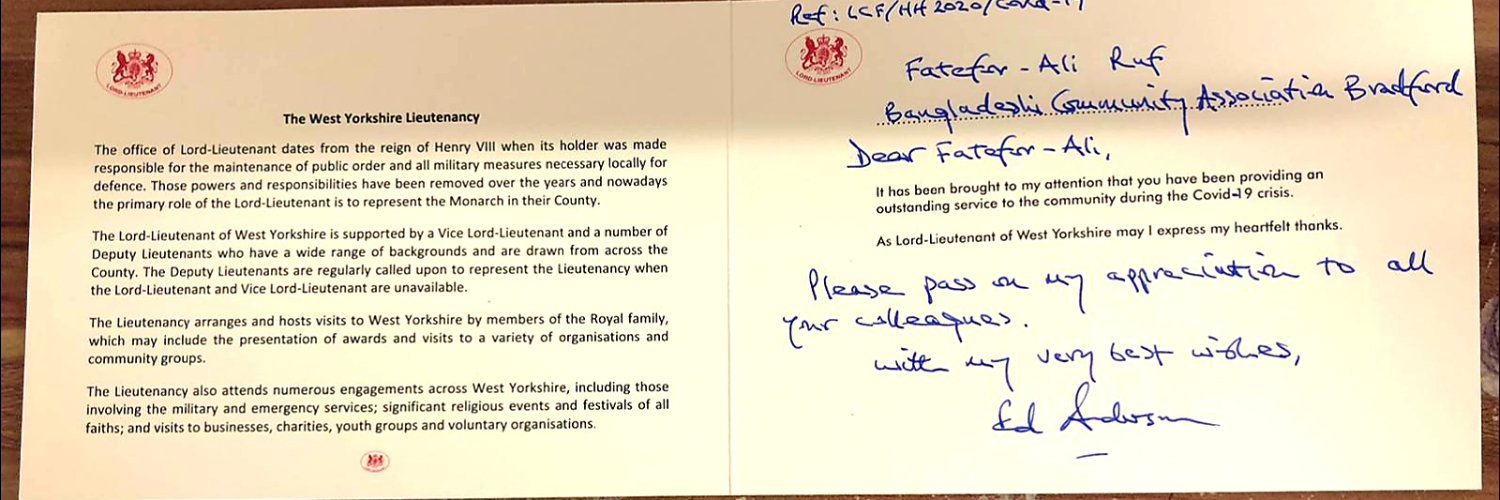 LORD-LIEUTENANT
The West Yorkshire Lieutenancy
The office of Lord-Lieutenant dates from the reign of Henry VIII when its holder was made
responsible for the maintenance of public order and all military measures necessary locally for
defence. Those powers and responsibilities have been removed over the years and nowadays
the primary role of the Lord-Lieutenant is to represent the Monarch in their County.
The Lord-Lieutenant of West Yorkshire is supported by a Vice Lord-Lieutenant and a number of
Deputy Lieutenants who have a wide range of backgrounds and are drawn from across the
County. The Deputy Lieutenants are regularly called upon to represent the Lieutenancy when
the Lord-Lieutenant and Vice Lord-Lieutenant are unavailable.
The Lieutenancy arranges and hosts visits to West Yorkshire by members of the Royal family,
which may include the presentation of awards and visits to a variety of organisations and
community groups.
The Lieutenancy also attends numerous engagements across West Yorkshire, including those
involving the military and emergency services; significant religious events and festivals of all
faiths; and visits to businesses, charities, youth groups and voluntary organisations.
Ref: LCF/HH 2020/Covid-19
LORD-LIEUTENANT
Fatefor-Ali Ruf
Bangladeshi Community Association Bradford
Dear Fatefor-Ali,
It has been brought to my attention that you have been providing an
outstanding service to the community during the Covid-19 crisis.
As Lord-Lieutenant of West Yorkshire may I express my heartfelt thanks.
Please pass on my appreciation to all
your colleagues.
with my very best wishes,
Ed Anderson